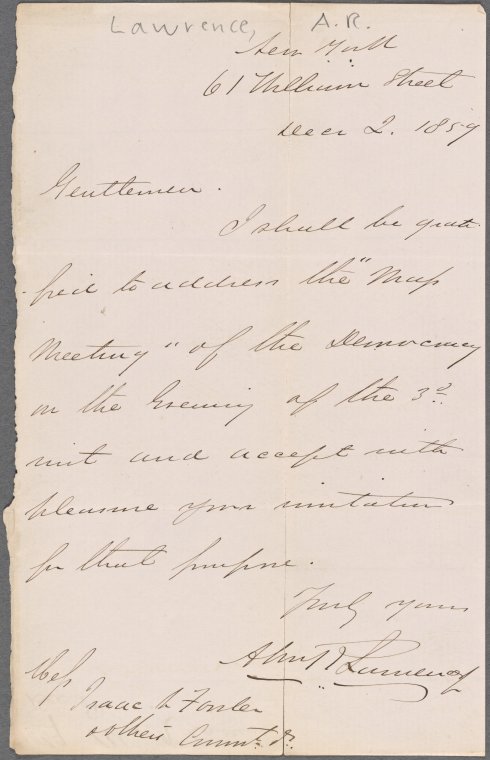 Lawrence, A.R.
New York
61 William Street
Decr 2. 1859
Gentlemen.
I shall be grati-
fied to address the "Mass
Meeting" of the Democracy
on the Evening of the 3d
inst and accept with
pleasure your invitation
for that purpose.
Truly yours
Abm R Lawrence Jr
Mess
Isaac V Fowler
& others Committ &c